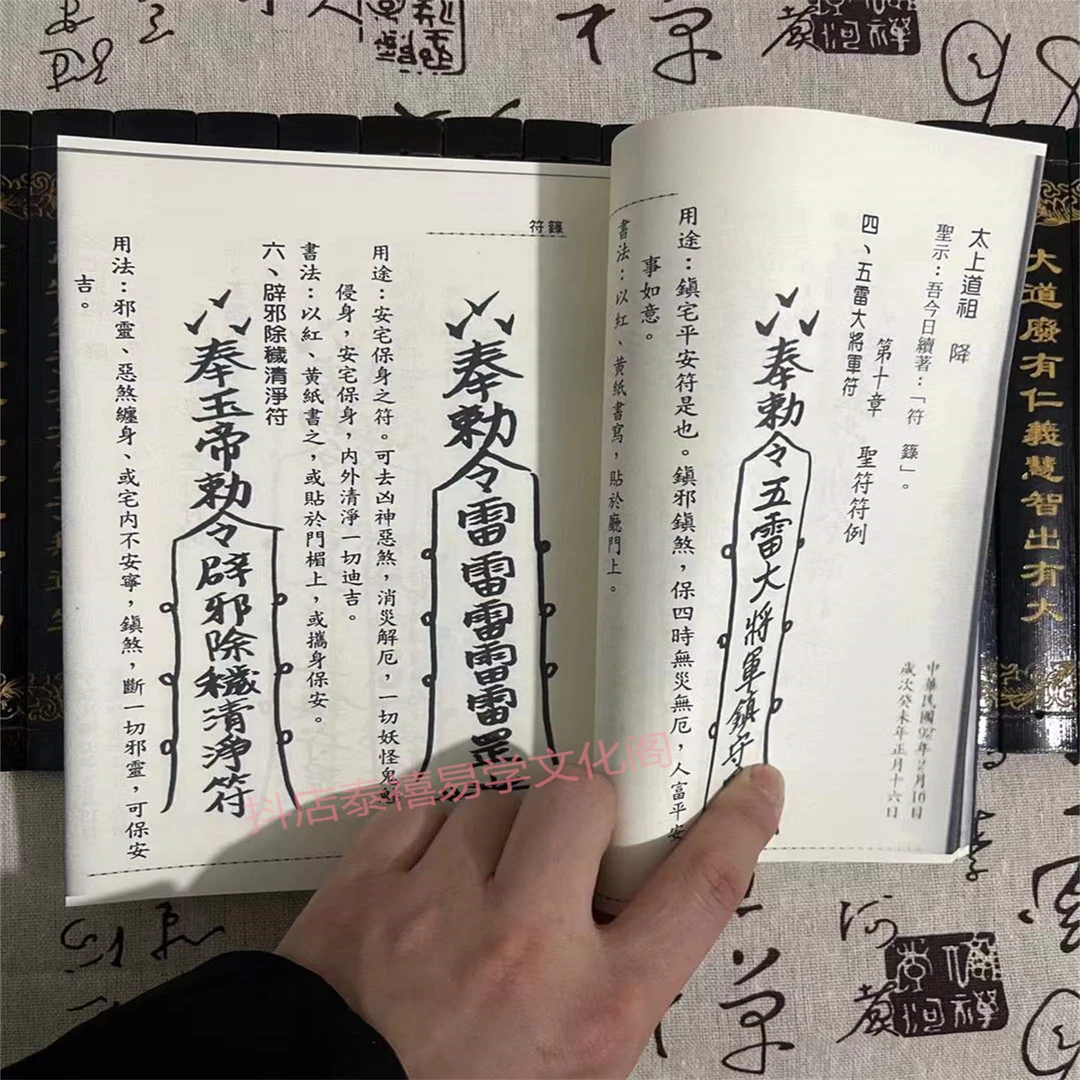 太上道祖　降
聖示：吾今日續著：「符　籙」。
中華民國92年2月16日
歲次癸未年正月十六日
第十章　聖符符例
四、五雷大將軍符
奉勅令五雷大將軍鎮守
用途：鎮宅平安符是也。鎮邪鎮煞，保四時無災無厄，人富平安
事如意。
書法：以紅、黃紙書寫，貼於廳門上。
符籙
奉勅令雷雷雷雷雷罡
用途：安宅保身之符。可去凶神惡煞，消災解厄，一切妖怪鬼
侵身，安宅保身，內外清淨一切迪吉。
書法：以紅、黃紙書之，或貼於門楣上，或攜身保安。
六、辟邪除穢清淨符
奉玉帝勅令辟邪除穢清淨符
用法：邪靈、惡煞纏身、或宅內不安寧，鎮煞，斷一切邪靈，可保安
吉。
大道廢有仁義慧智出有大
抖店泰禧易学文化阁